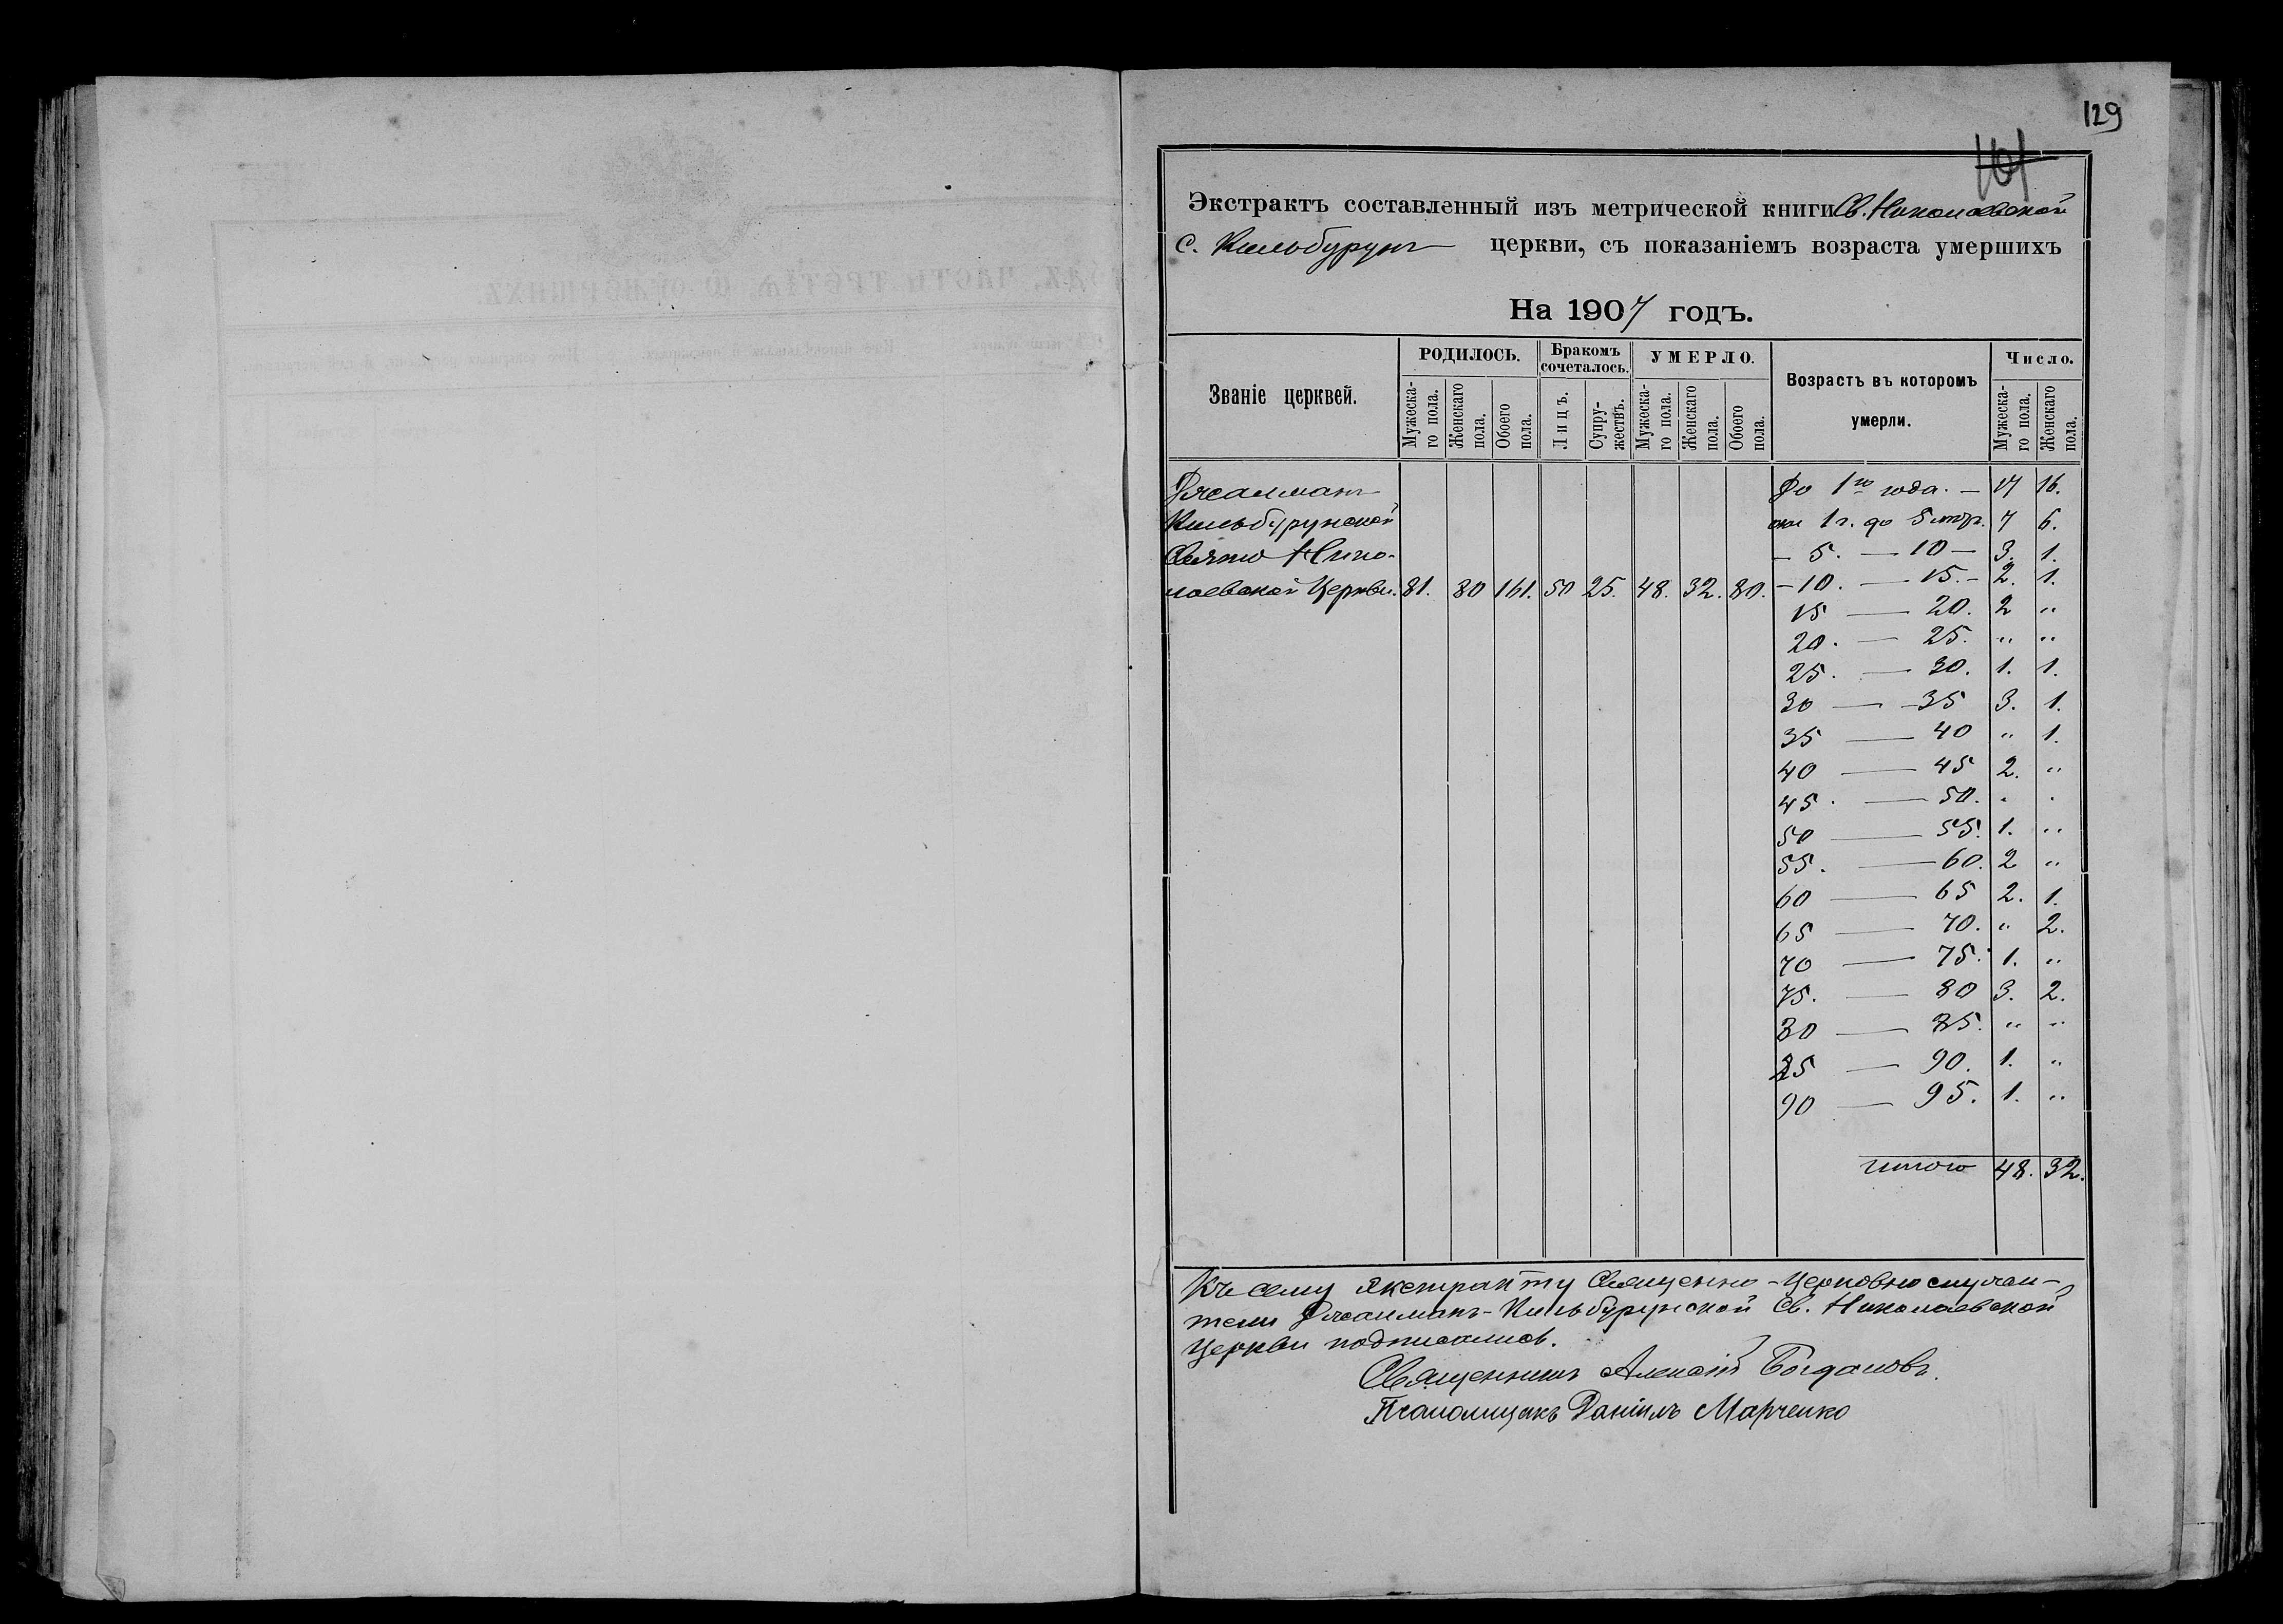 129
101
Экстрактъ составленный изъ метрической книги Св. Николаевской
с. Кильбурунъ церкви, съ показаніемъ возраста умершихъ
На 1907 годъ.
Званіе церквей.
РОДИЛОСЬ.
Бракомъ сочеталось.
УМЕРЛО.
Возрастъ въ которомъ умерли.
Число.
Мужеска-го пола.
Женскаго пола.
Обоего пола.
Лицъ.
Супру-жествъ.
Мужеска-го пола.
Женскаго пола.
Обоего пола.
Мужеска-го пола.
Женскаго пола.
Джалманъ
Кильбурунской
Свято Нико-
лаевской Церкви. 81. 80 161. 50 25. 48. 32. 80.
До 1го года. — 17 16.
отъ 1 г. до 5 7 6.
— 5. — 10 — 3. 1.
— 10. — 15. — 2. 1.
15 — 20. 2 "
20. — 25. " "
25. — 30. 1. 1.
30 — 35 3. 1.
35 — 40 " 1.
40 — 45 2. "
45. — 50. " "
50 — 55. 1. "
55. — 60. 2 "
60 — 65 2. 1.
65 — 70. " 2.
70 — 75. 1. "
75. — 80 3. 2.
80 — 85. " "
85 — 90. 1. "
90 — 95. 1. "
итого 48. 32.
Къ сему экстракту Священно-церковнослужи-
тели Джалманъ-Кильбурунской Св. Николаевской
Церкви подписались.
Священникъ Алексій Богдановъ.
Псаломщикъ Даніилъ Марченко